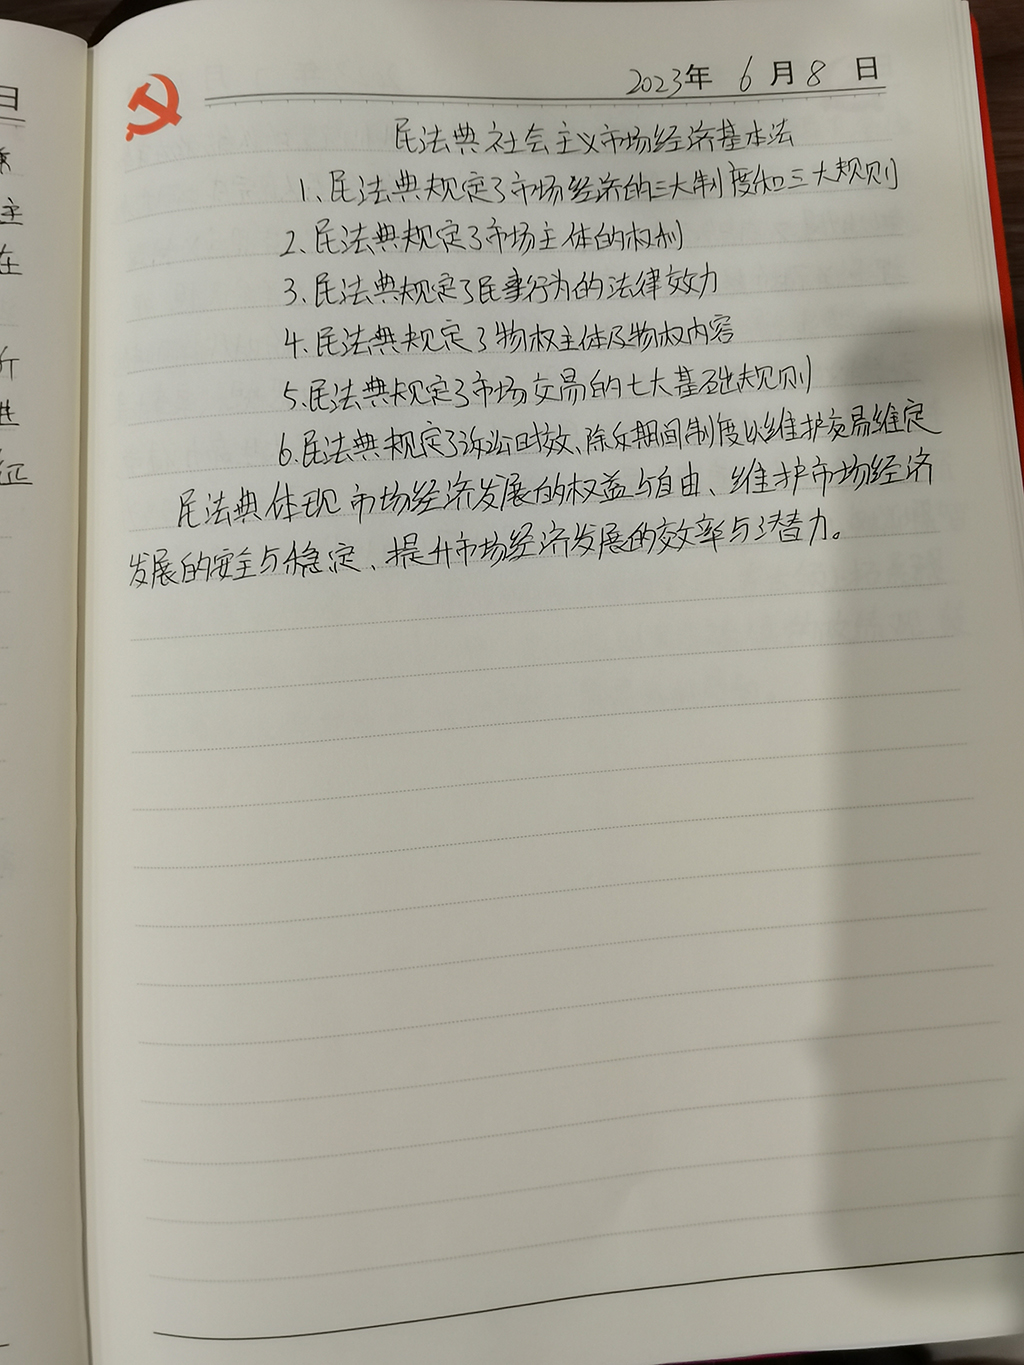 2023年 6月8日
民法典社会主义市场经济基本法
1、民法典规定了市场经济的三大制度和三大规则
2.民法典规定了市场主体的权利
3.民法典规定了民事行为的法律效力
4.民法典规定了物权主体及物权内容
5.民法典规定了市场交易的七大基础规则
6.民法典规定了诉讼时效、除斥期间制度以维护交易维定
民法典体现市场经济发展的权益与自由、维护市场经济
发展的安全与稳定、提升市场经济发展的效率与潜力。
日
主
在
斤
进
征